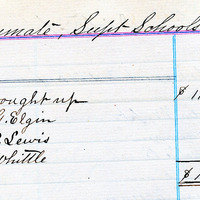 umate, Supt Schools
ought up $1
G. Elgin
Lewis
Whittle
$1